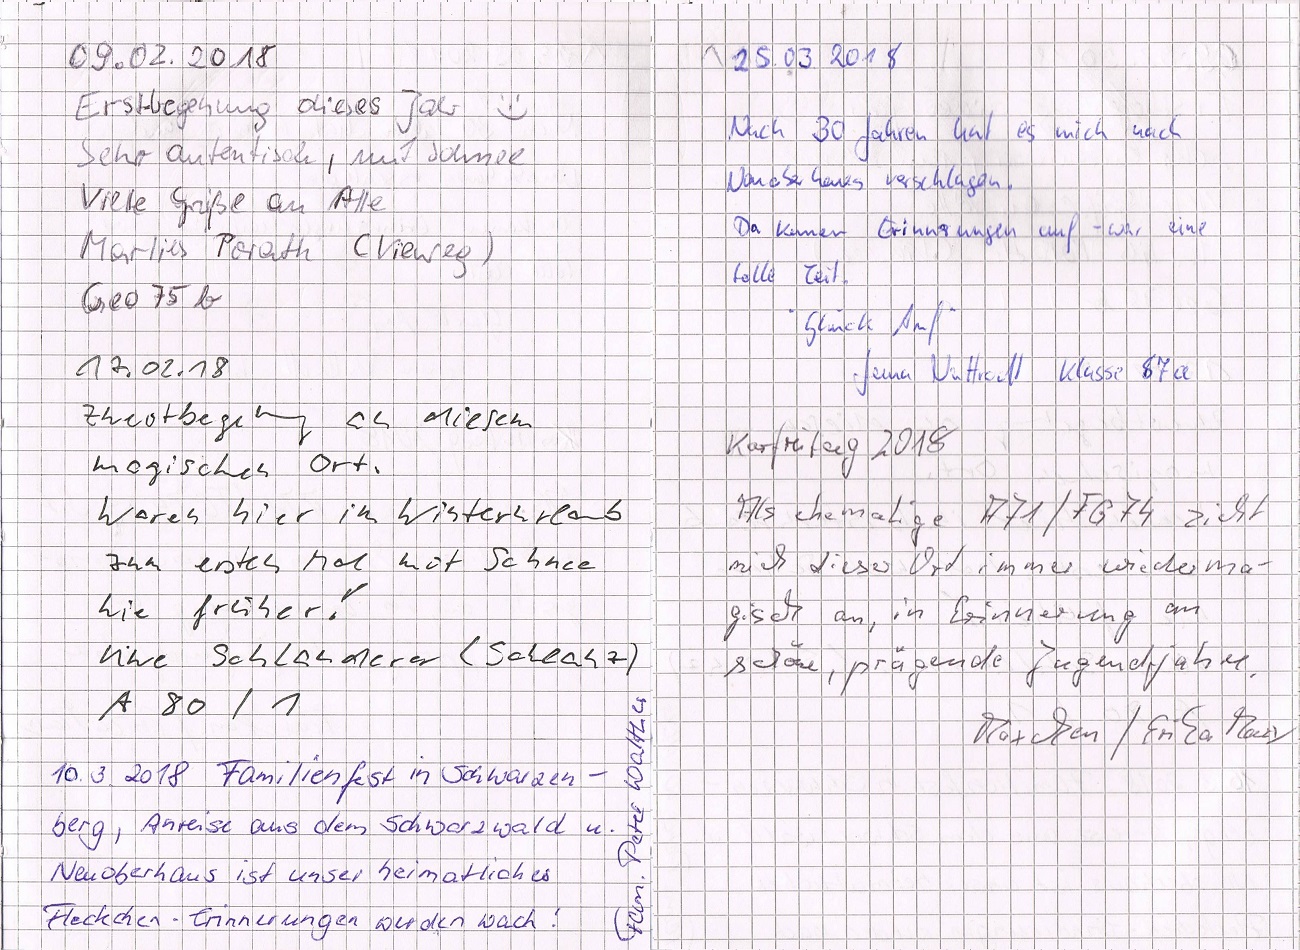 09.02.2018
Erstbegehung dieses Jahr
Sehr autentisch, mit Schnee
Viele Grüße an Alle
Marlies Porath (Vieweg)
Geo 75 b
17.02.18
Zweotbegehung an diesem
magischen Ort.
Waren hier im Winterurlaub
zum ersten Mal mit Schnee
wie früher!
Uwe Schlanderer (Schlanz)
A 80 / 1
10.3.2018 Familienfest in Schwarzen-
berg, Anreise aus dem Schwarzwald u.
Neuoberhaus ist unser heimatliches
Fleckchen - Erinnerungen werden wach!
Fam. Peter Walther
25.03.2018
Nach 30 Jahren hat es mich nach
Neuoberhaus verschlagen.
Da kamen Erinnerungen auf - war eine
tolle Zeit.
"Glück Auf"
Klasse 87a
Karfreitag 2018
Als ehemalige A71/FG74 zieht
mich dieser Ort immer wieder ma-
gisch an, in Erinnerung an
schöne, prägende Jugendjahre.
/ Erika